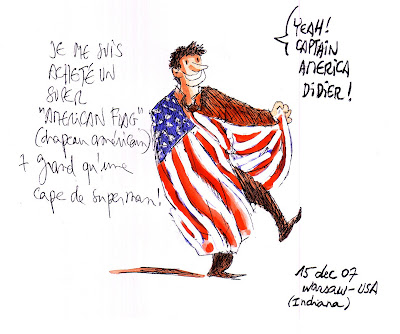 JE ME SUIS
ACHETÉ UN
SUPER
"AMERICAN FLAG"
(drapeau américain)
+ grand qu'une
cape de Superman!
YEAH!
CAPTAIN
AMERICA
DIDIER!
15 dec 07
WARSAW-USA
(Indiana)